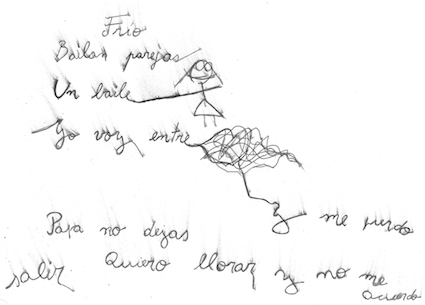 Frío
Bailan parejas
Un baile
Yo voy entre
y me pierdo
Papa no dejas
salir Quiero llorar y no me
acuerdo